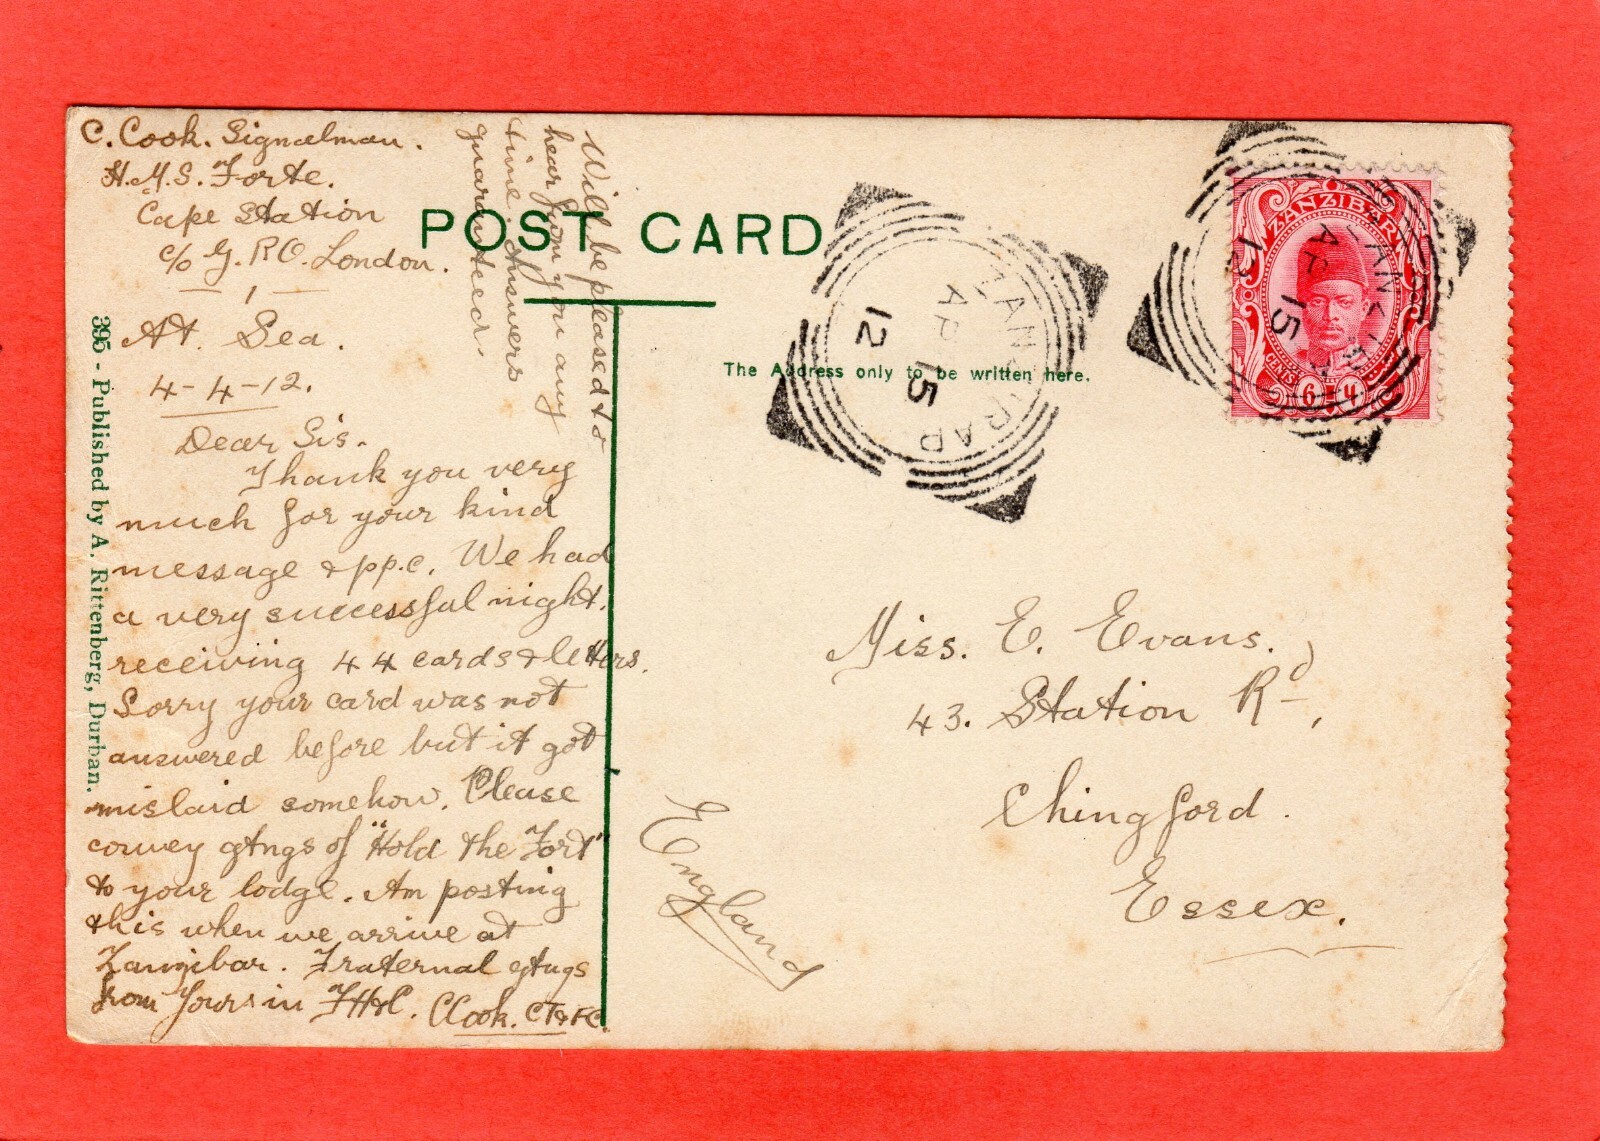 C. Cook. Signalman.
H.M.S. Forte.
Cape Station
c/o G.P.O. London.
At. Sea.
4-4-12.
Dear Sis.
Thank you very
much for your kind
message & pp.c. We had
a very successful night.
receiving 44 cards & letters.
Sorry your card was not
answered before but it got
mislaid somehow. Please
convey gtngs of "Hold the Fort"
to your lodge. Am posting
this when we arrive at
Zanzibar. Fraternal gtngs
from Yours in FH&C. CCook. CT&FC.
Will be pleased to
hear from you any
time. Answers
guaranteed.
POST CARD
The Address only to be written here.
395 - Published by A. Rittenberg, Durban.
ZANZIBAR
AP 15
12
ZANZIBAR
AP 15
12
ZANZIBAR
CENTS 6
Miss. E. Evans.
43. Station Rd,
Chingford.
Essex.
England